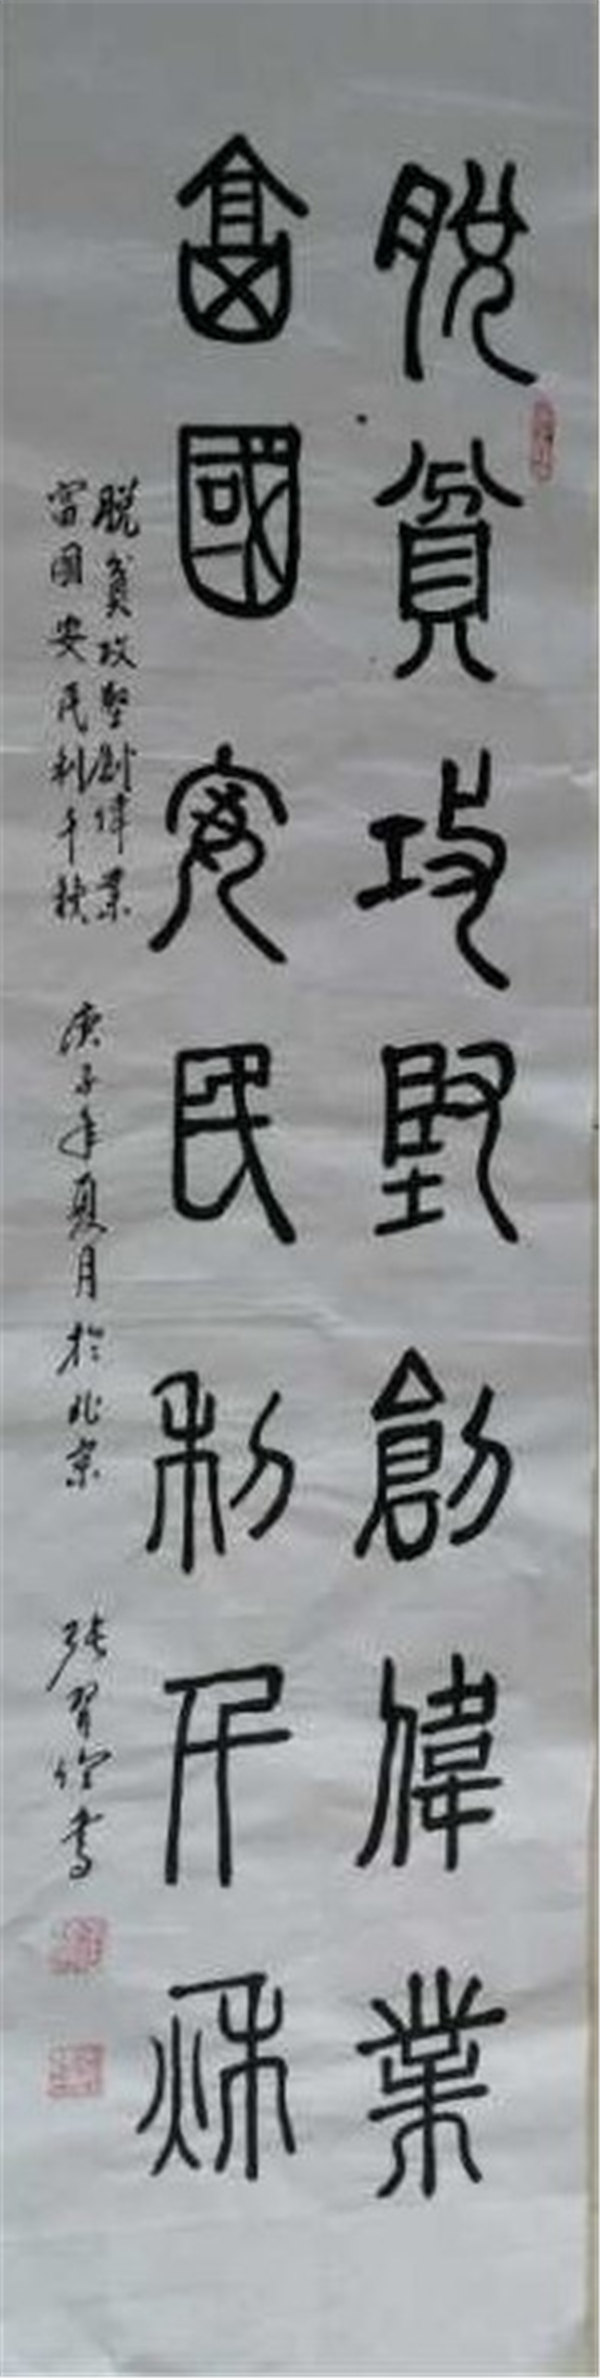 脱貧攻堅創偉業
富國安民利千秋
脱貧攻堅創偉業
富國安民利千秋 庚子年夏月於北京 張習 書